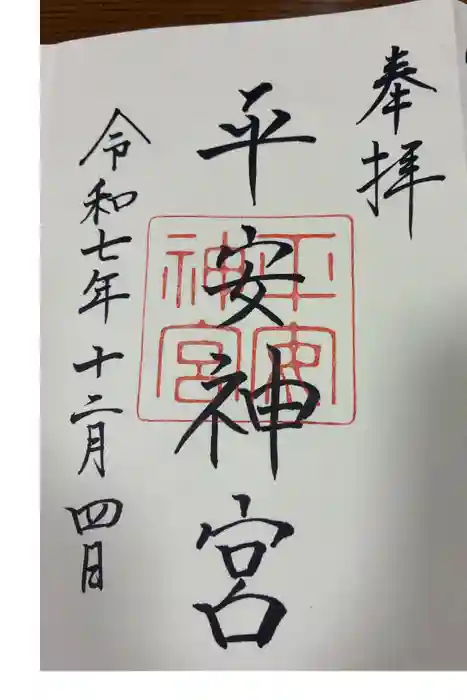 奉拝
平安神宮
平安神宮
令和七年十二月四日